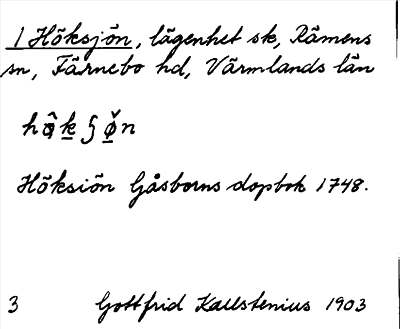 1 Höksjön, lägenhet sk, Rämens
sn, Färnebo hd, Värmlands län
Höksiön Gåsborns dopbok 1748.
3 Gottfrid Kallstenius 1903